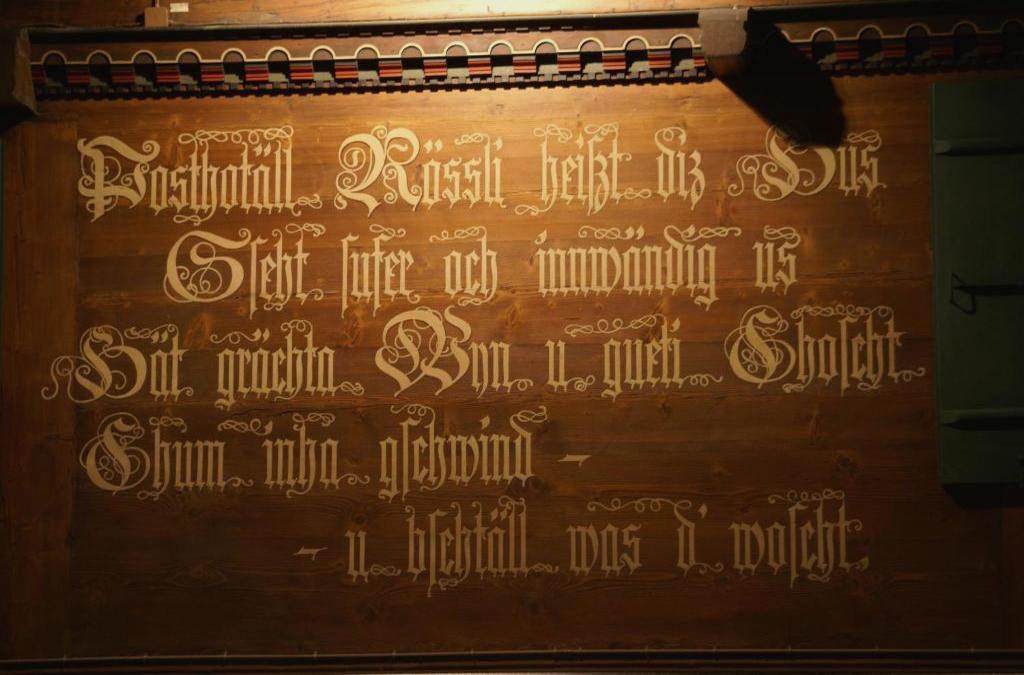 Posthotäll Rössli heißt diz Hus
Gseht sufer och innwändig us
Hät grächta Wyn u gueti Choscht
Chum inha gschwind –
– u bschtäll was d' woscht.